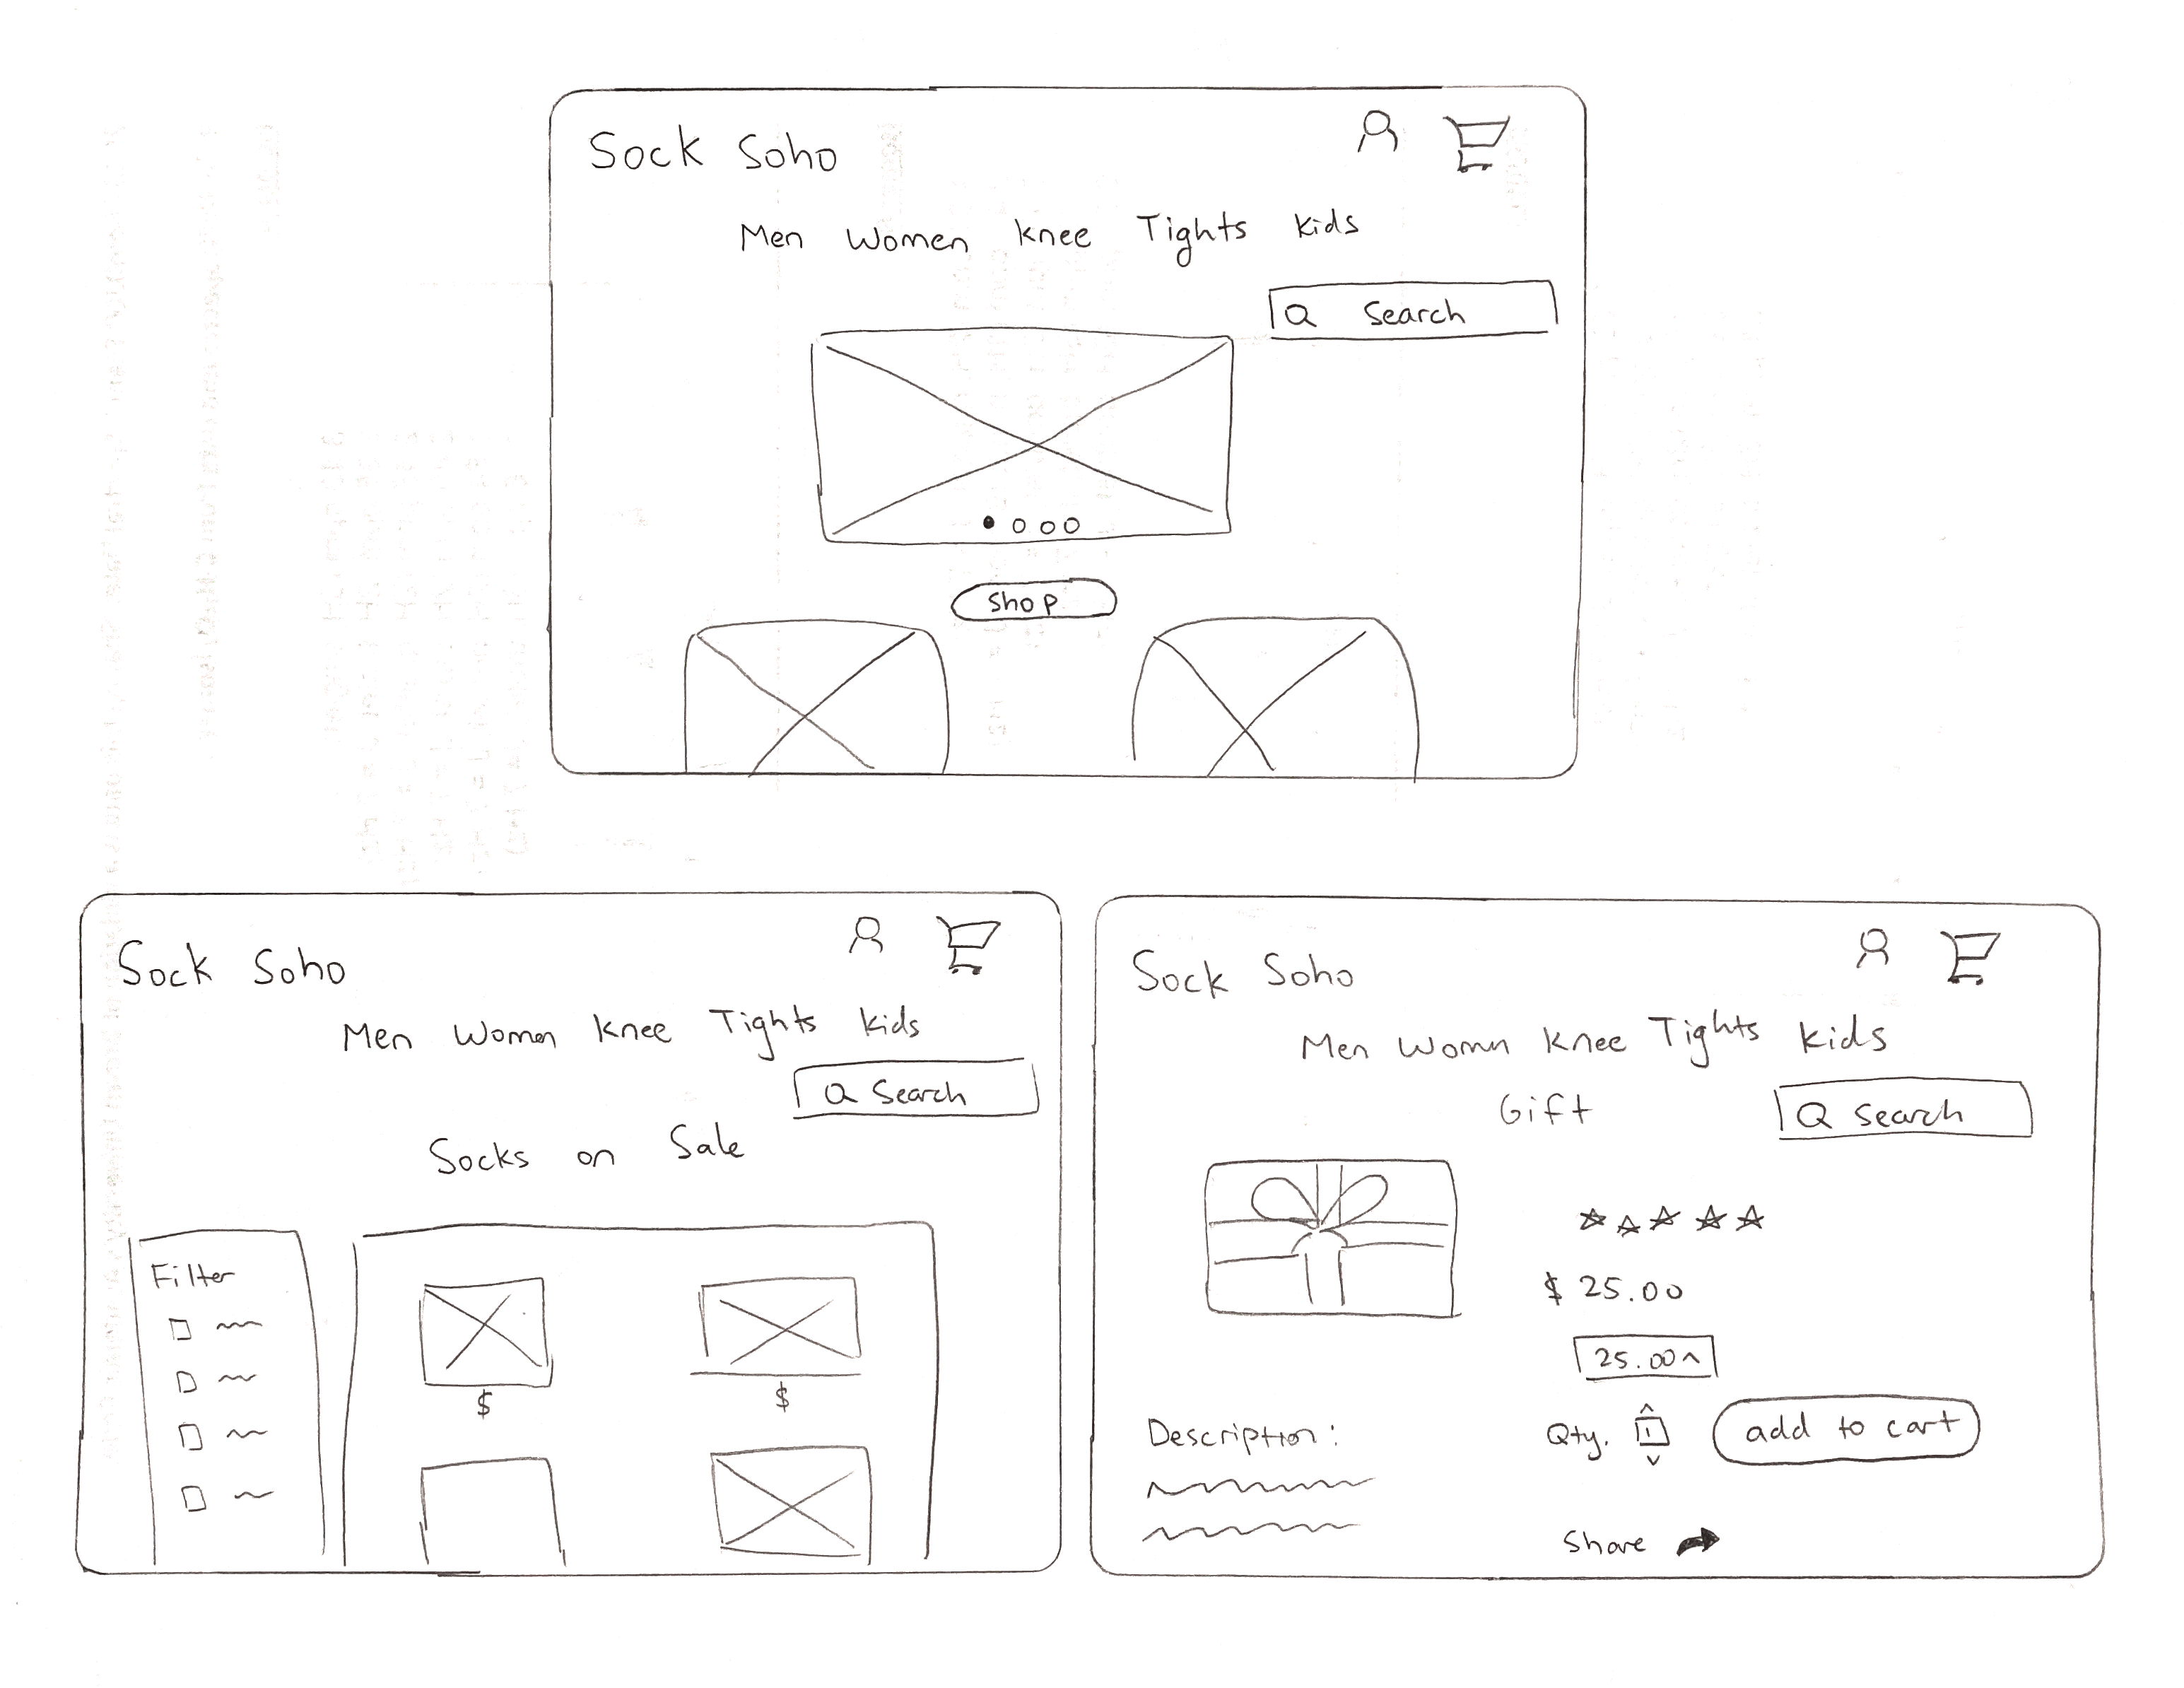 Sock Soho
Men Women Knee Tights Kids
Search
Shop
Sock Soho
Men Women Knee Tights Kids
Search
Socks on Sale
Filter
$ $
Sock Soho
Men Women Knee Tights Kids
Gift
Search
$ 25.00
25.00
Description:
Qty. 1
add to cart
Share